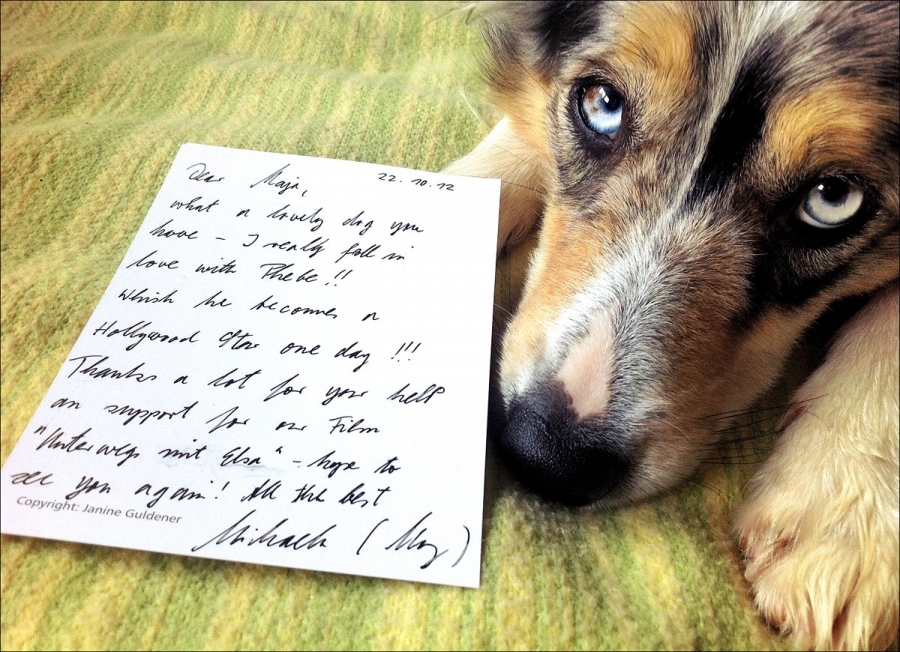 22.10.12
Dear Maja,
what a lovely dog you
have - I really fall in
love with Phebe!!
Whish he becomes a
Hollywood Star one day !!!
Thanks a lot for your help
an support for our Film
"Unterwegs mit Elsa" - hope to
see you again! All the best
Copyright: Janine Guldener
Michaela (May)